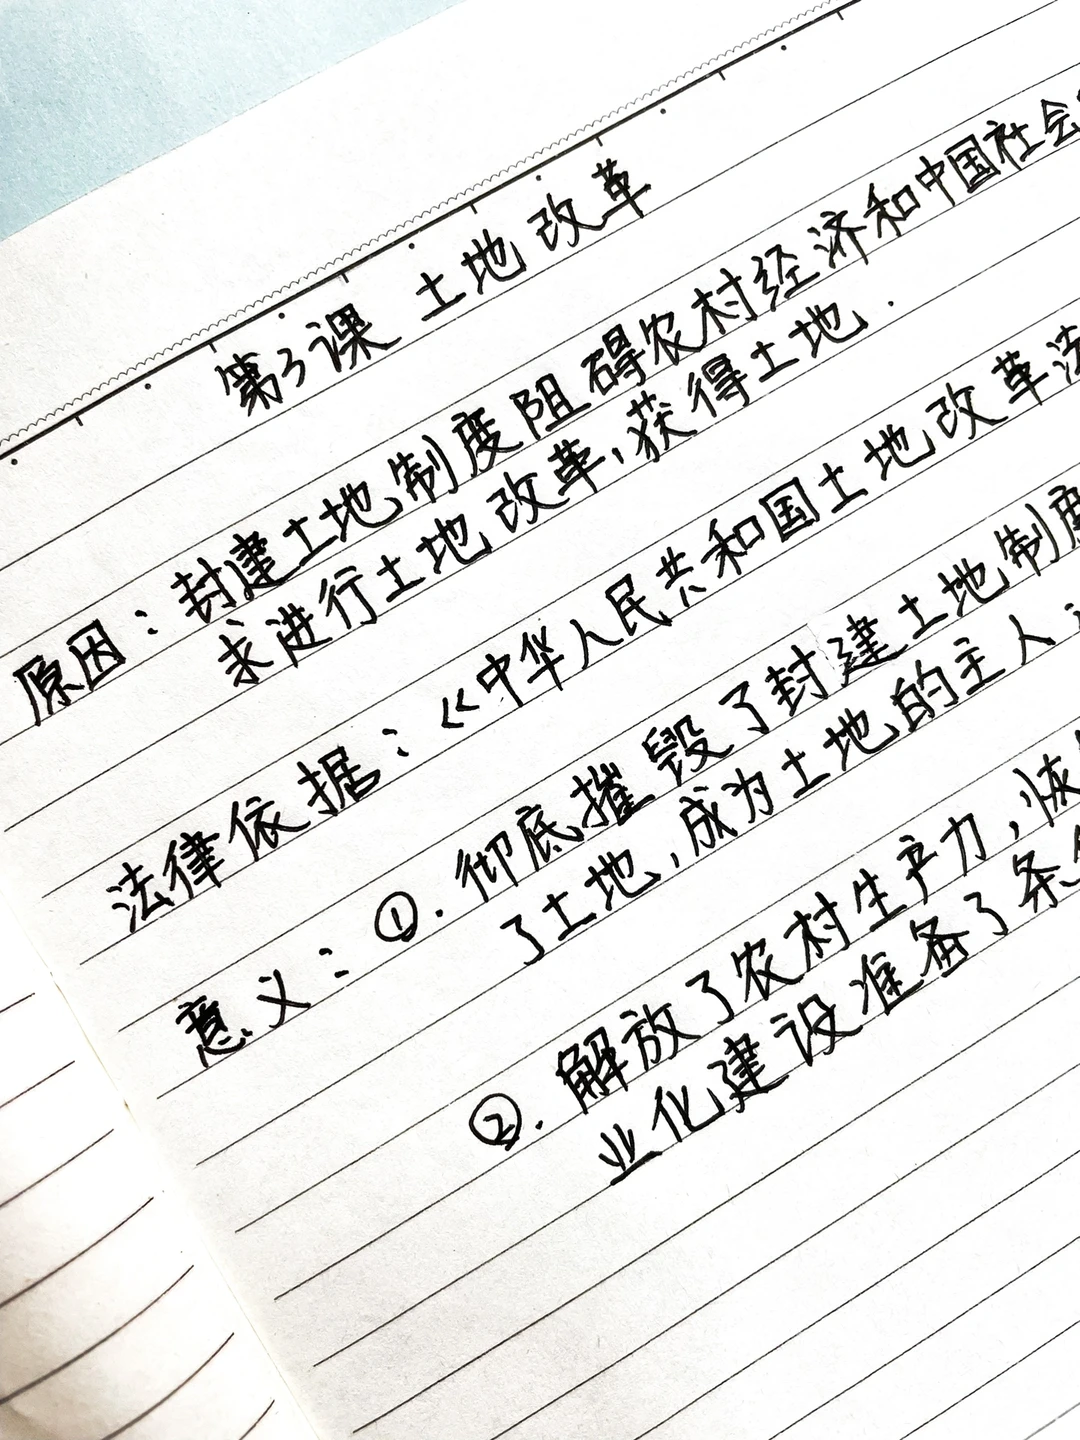 第3课 土地改革
原因：封建土地制度阻碍农村经济和中国社会
求进行土地改革,获得土地.
法律依据：《中华人民共和国土地改革法
意义：①.彻底摧毁了封建土地制度
了土地,成为土地的主人
②.解放了农村生产力,恢
业化建设准备了条